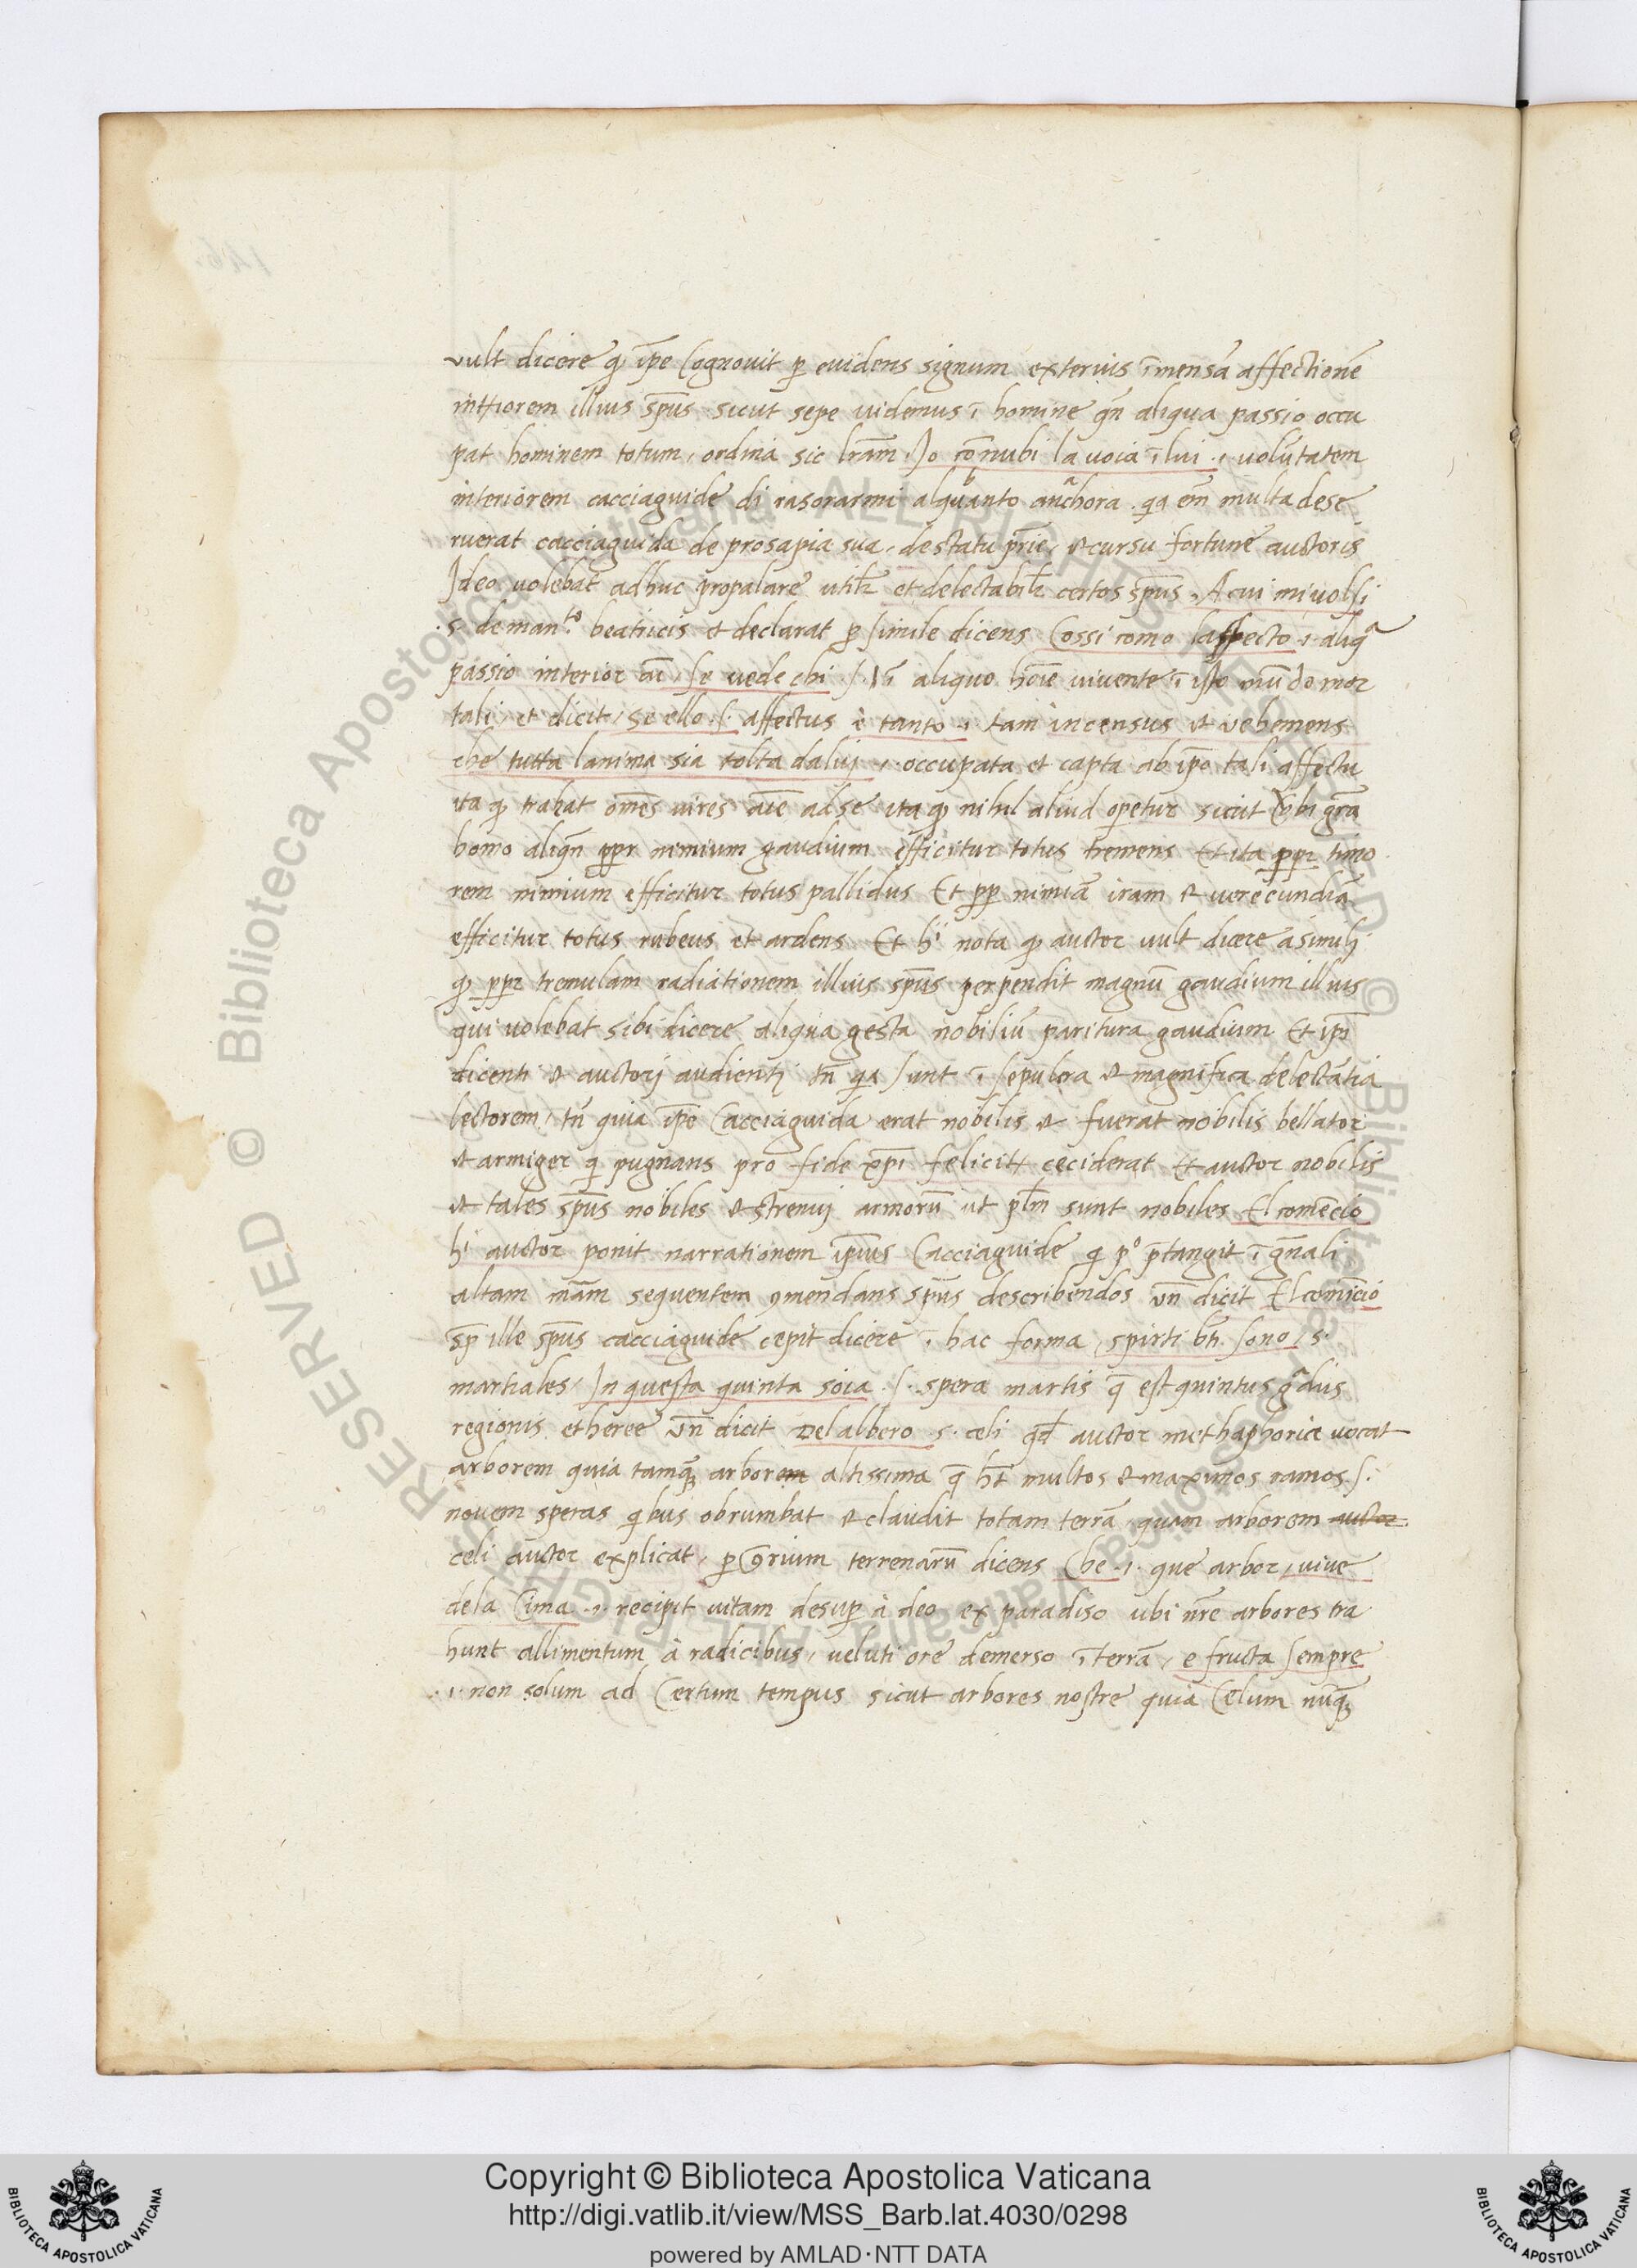 vult dicere ꝙ ip̄e Cognouit ꝑ euidens signum exterius īmensā affectionē
intt̄iorem illius sp̄us sicut sepe uidemus ī homine qn̄ aliqua passio occu
pat hominem totum, ordina sic lr̄am, Jo co͞nubi la uoia ī lui .i. volūtatem
interiorem cacciaguide di rasorarmi alquanto anchora . qa em̄ multa dese
ruerat cacciaguida de prosapia sua, de statu pr̄ie, et cursu fortune auctoris
Ideo volebat adhuc propalare utilr̄ et delectabilr̄ certos sp̄us, A cui mi volsi
.s. de man.to beatricis et declarat ꝑ simile dicens Cossi como laspecto .i. aliqa
passio interior aīe, se vede chi .s. ī aliquo hoīe vivente ī isto mūdo mor
tali, et dicit, se ello .s. affectus è tanto .i. tam incensus et vehemens
che tutta lanima sia tolta da luj .i. occupata et capta ab ip̄o tali affectu
ita ꝙ trahat om̄es uires aīe ad se ita ꝙ nihil aliud operetur sicut Vbi gr̄a
homo aliqn̄ ppr nimium gaudium efficitur totus tremens Et ita ppr timo
rem nimium efficitur totus pallidus Et pp nimiā iram et verecundiā
efficitur totus rubeus et ardens Et hi nota ꝙ auctor uult dicere a simili
ꝙ ppr tremulam radiationem illius sp̄us perpendit magnū gaudium illius
qui volebat sibi dicere aliqua gesta nobiliū paritura gaudium Et ip̄i
dicenti et auctorj audienti tn̄ qa sunt ī sepulcra et magnifica delectātia
lectorem, tn̄ quia ip̄e Cacciaguida erat nobilis et fuerat nobilis bellator
et armiger q pugnans pro fide xp̄i felicitt̄ ceciderat Et auctor nobilis
et tales sp̄us nobiles et strenuj armorū ut pl̄m sunt nobiles El comēcio
hi auctor ponit narrationem ip̄ius Cacciaguide q po p̄tangit ī gn̄ali
altam mām sequentem ꝯmendans sp̄us describendos vn̄ dicit El comīcio
sp̄ ille sp̄us cacciaguide cepit dicere ī hac forma, spirti bti sono, .s.
martiales, In questa quinta soia .s. spera martis q̄ est quintus gradus
regionis etheree Vn̄ dicit Del albero .s. celi qd auctor methaphorice vocat
arborem quia tamqꝫ arborem altissima q̄ ht̄ multos et maximos ramos .s.
novem speras qbus obrumbat et claudit totam terrā quam arborem auctor
celi auctor explicat, ꝑ ꝯrium terrenarū dicens Che .i. que arbor, vive
de la Cima .i. recipit vitam desuꝑ à deo ex paradiso ubi nr̄e arbores tra
hunt allimentum à radicibus, veluti ore demerso ī terrā, e fructa sempre
.i. non solum ad Certum tempus sicut arbores nostre quia Celum nūqꝫ
Copyright © Biblioteca Apostolica Vaticana
http://digi.vatlib.it/view/MSS_Barb.lat.4030/0298
powered by AMLAD·NTT DATA